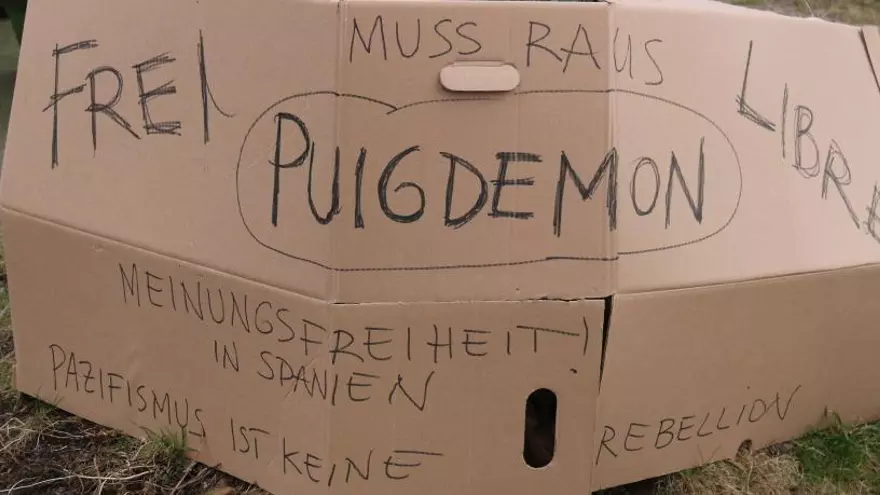 MUSS RAUS
FREI
PUIGDEMON
LIBRE
MEINUNGSFREIHEIT!
IN SPANIEN ?
PAZIFISMUS IST KEINE REBELLION